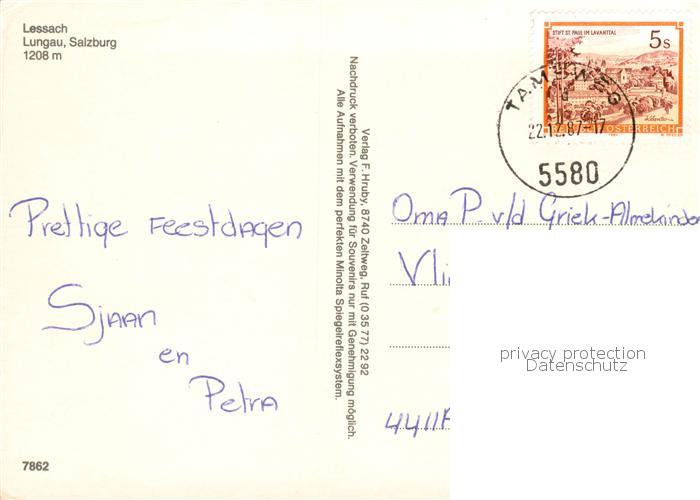 Lessach
Lungau, Salzburg
1208 m
Prettige Feestdagen
Sjaan
en
Petra
7862
Nachdruck verboten. Verwendung für Souvenirs nur mit Genehmigung möglich.
Verlag F. Hruby, 8740 Zeltweg. Ruf (0 35 77) 22 92
Alle Aufnahmen mit dem perfekten Minolta Spiegelreflexsystem.
STIFT ST. PAUL IM LAVANTTAL
5 S
ÖSTERREICH
TAMSWEG
22.12.87-17
5580
Oma P. v/d Griek-Almekinder
Vli
4411A
privacy protection
Datenschutz